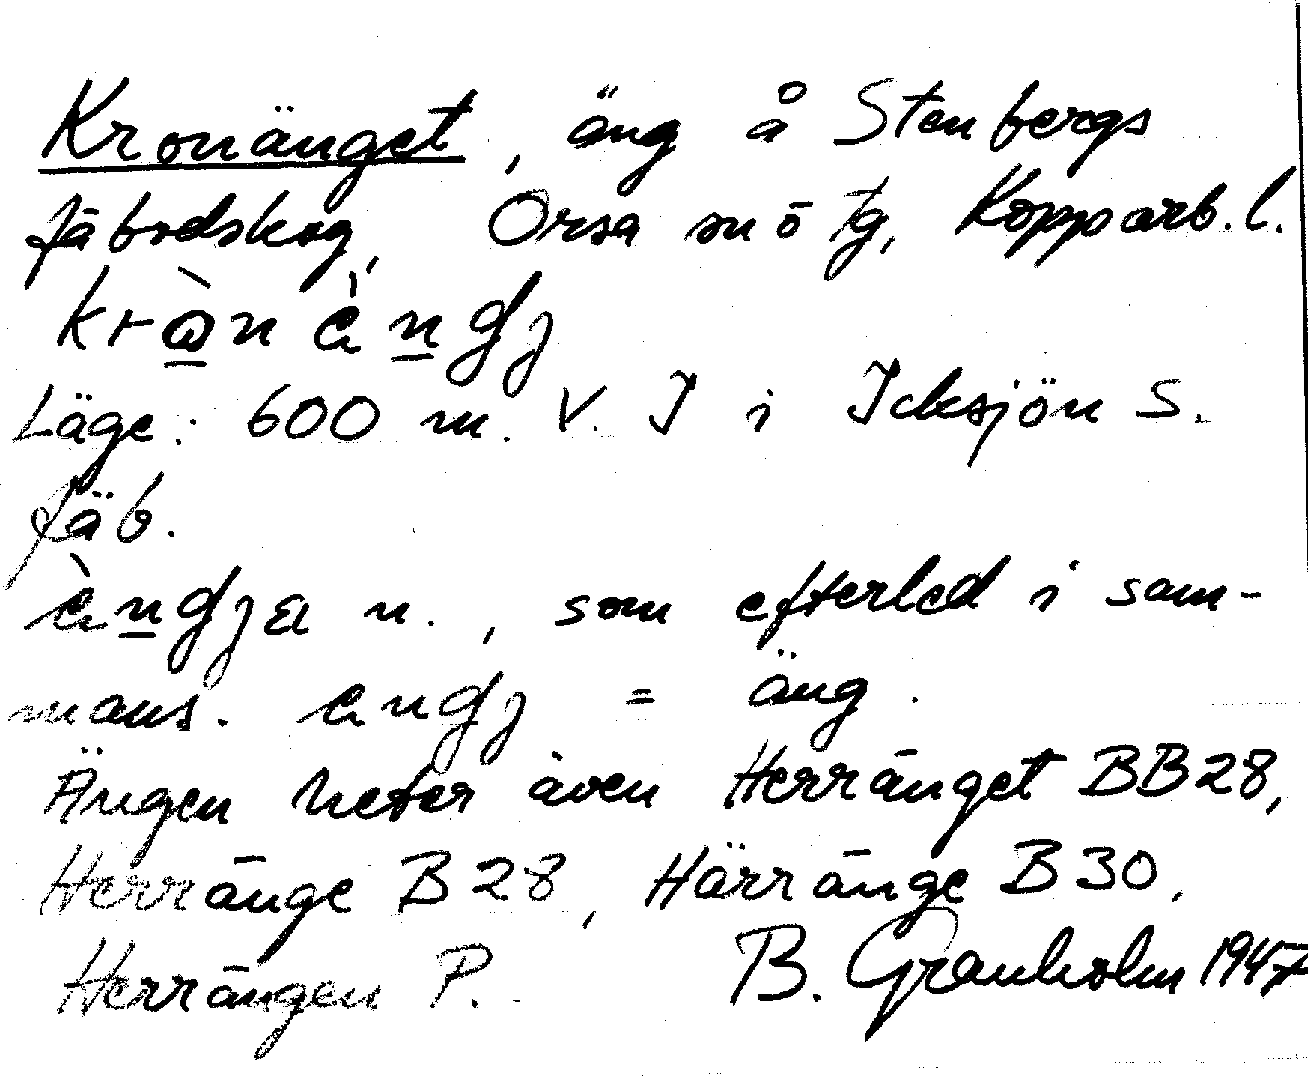 Kronänget, äng å Stenbergs
fäbodskog, Orsa sn ö tg, Kopparb. l.
Läge: 600 m. V. I i Icksjön S.
fäb.
n., som efterled i sam-
mans. = äng.
Ängen heter även Herränget BB28,
Herränge B28, Härränge B30,
Herrängen P. B. Granholm 1947